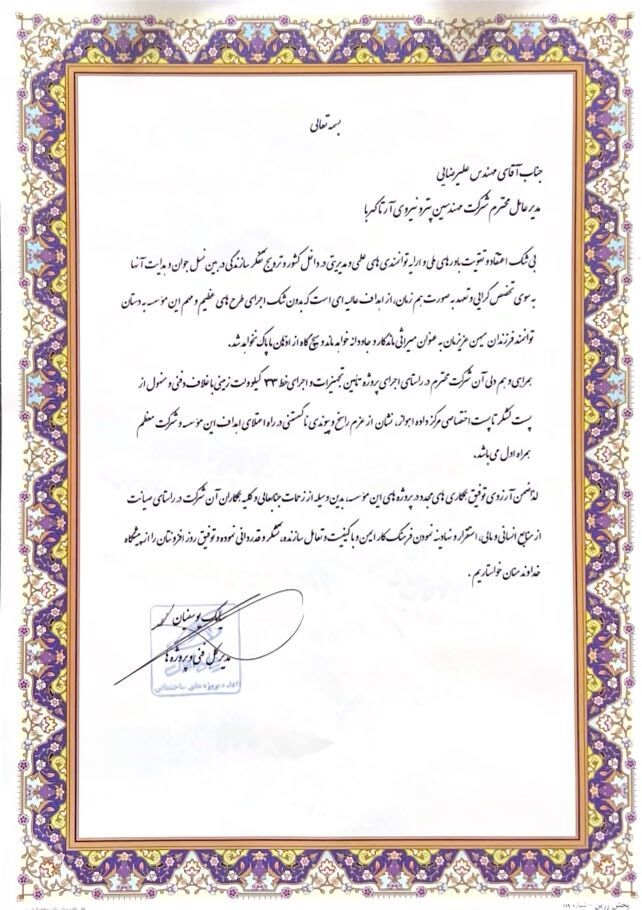 بسمه تعالی
جناب آقای مهندس علیرضایی
مدیر عامل محترم شرکت مهندسین پترو نیروی آرتا کهربا
بی شک اعتقاد و تقویت باورهای ملی و ارایه توانمندی های علمی و مدیریتی در داخل کشور و ترویج تفکر سازندگی در بین نسل جوان و هدایت آنها
به سوی تخصص گرایی و تعهد به صورت هم زمان، از اهداف عالیه ای است که بدون شک اجرای طرح های عظیم و مهم این مؤسسه به دستان
توانمند فرزندان میهن عزیزمان به عنوان میراثی ماندگار و جاودانه خواهد ماند و هیچ گاه از اذهان ما پاک نخواهد شد.
همراهی و هم دلی آن شرکت محترم در راستای اجرای پروژه تامین تجهیزات و اجرای خط ۳۳ کیلوولت زمینی با غلاف دفنی و منهول از
پست گلشکر تا پست اختصاصی مرکز داده اهواز، نشان از عزم راسخ و پیوندی ناگسستنی در راه اعتلای اهداف این مؤسسه و شرکت معظم
همراه اول می باشد.
لذا ضمن آرزوی توفیق همکاری های مجدد در پروژه های این مؤسسه، بدین وسیله از زحمات جنابعالی و کلیه همکاران آن شرکت در راستای صیانت
از منابع انسانی و مالی، استقرار و نهادینه نمودن فرهنگ کار ایمن و با کیفیت و تعامل سازنده، تشکر و قدردانی نموده و توفیق روز افزونتان را از پیشگاه
خداوند منان خواستاریم .
بابک یوسفیان
مدیر کل فنی و پروژه ها
اداره پروژه های ساختمانی
پخش زرین - شماره ۱۱۹